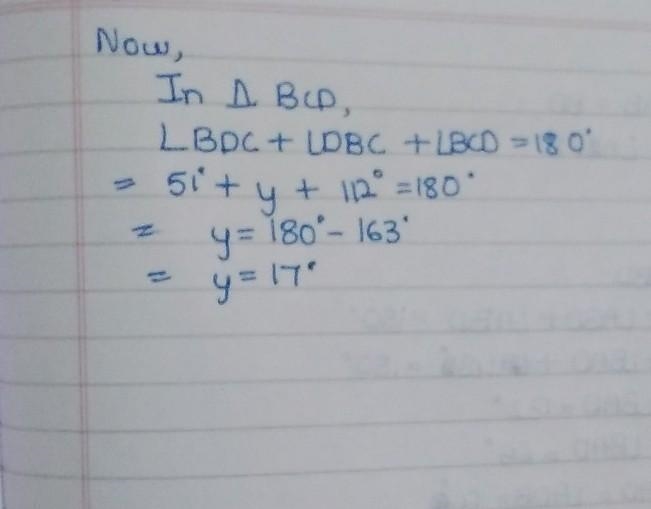 Now,
In Δ BCD,
∠BDC + ∠DBC + ∠BCD = 180°
= 51° + y + 112° = 180°
= y = 180° - 163°
= y = 17°